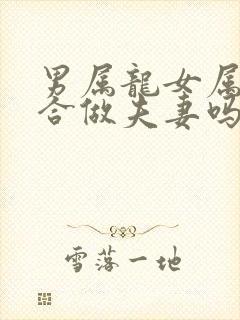 男属龍女属
合做夫妻吗
雪落一地